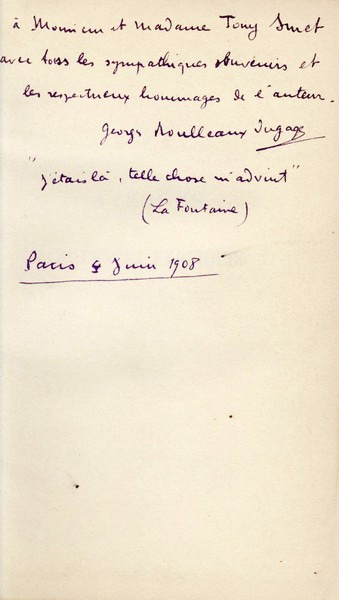 à Monsieur et madame Tony Smet
avec tous les sympathiques souvenirs et
les respectueux hommages de l'auteur.
Georges Roulleaux Dugage
"j'étais là, telle chose m'advint"
(La Fontaine)
Paris 4 Juin 1908